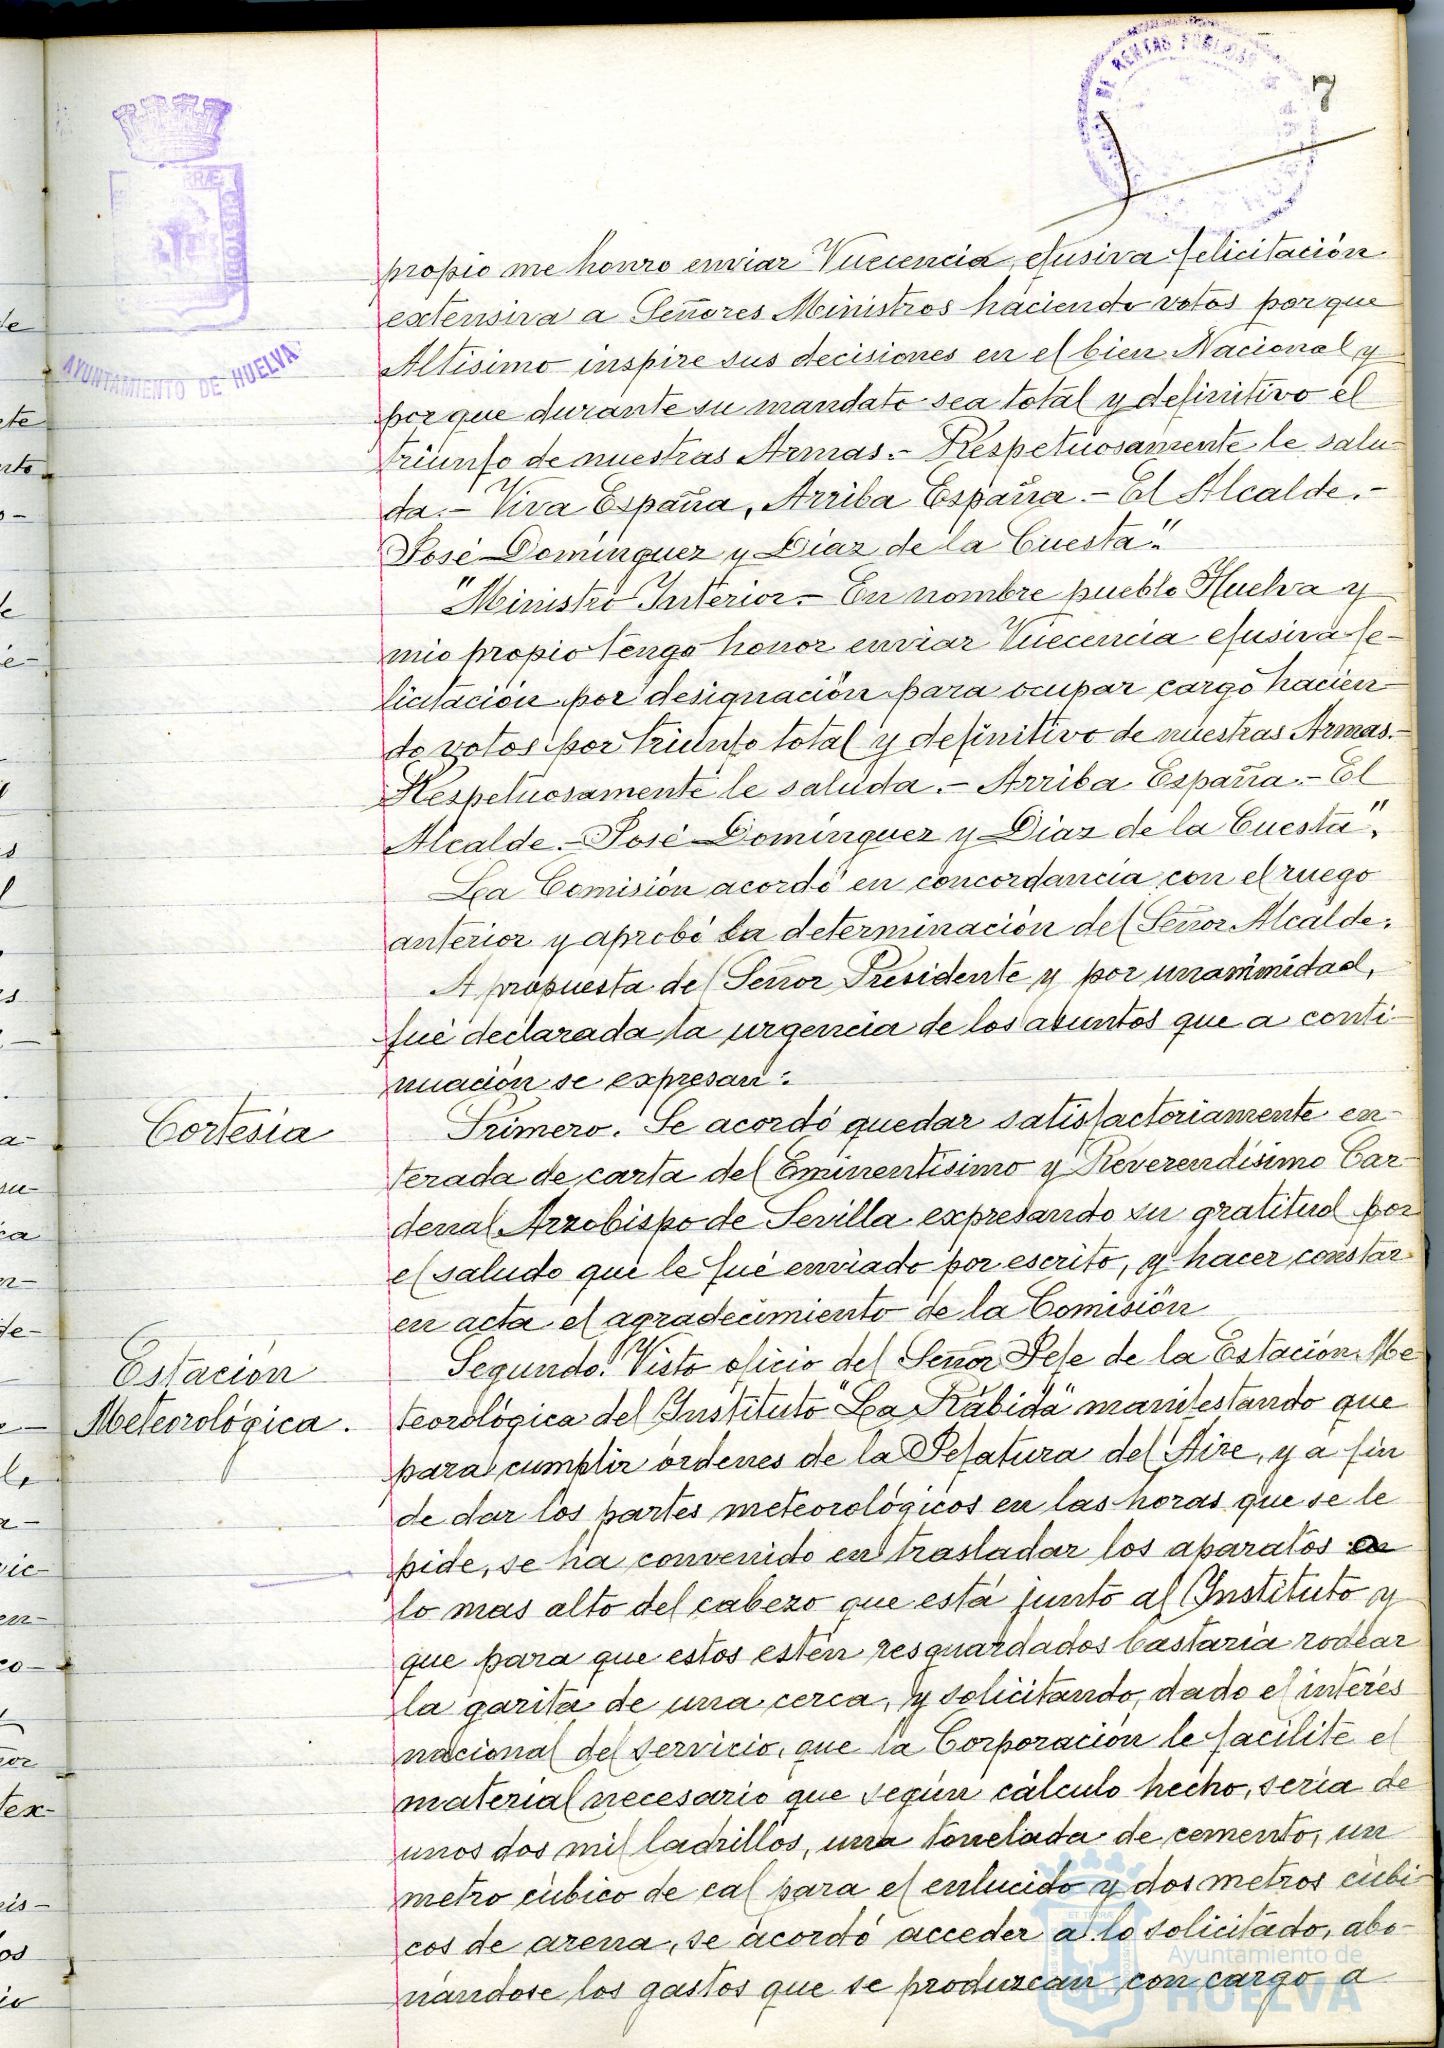 7
AYUNTAMIENTO DE HUELVA
propio me honro enviar Vuecencia efusiva felicitación
extensiva a Señores Ministros haciendo votos porque
Altisimo inspire sus decisiones en el bien Nacional y
porque durante su mandato sea total y definitivo el
triunfo de nuestras Armas.- Respetuosamente le salu-
da.- Viva España, Arriba España.- El Alcalde.-
José Domínguez y Díaz de la Cuesta".
"Ministro Interior.- En nombre pueblo Huelva y
mio propio tengo honor enviar Vuecencia efusiva fe-
licitación por designación para ocupar cargo hacien-
do votos por triunfo total y definitivo de nuestras Armas.-
Respetuosamente le saluda.- Arriba España.- El
Alcalde.- José Domínguez y Díaz de la Cuesta".
La Comisión acordó en concordancia con el ruego
anterior y aprobó la determinación del Señor Alcalde.
A propuesta del Señor Presidente y por unanimidad,
fué declarada la urgencia de los asuntos que a conti-
nuación se expresan:
Cortesía
Primero. Se acordó quedar satisfactoriamente en-
terada de carta del Eminentísimo y Reverendísimo Car-
denal Arzobispo de Sevilla expresando su gratitud por
el saludo que le fué enviado por escrito, y hacer constar
en acta el agradecimiento de la Comisión
Estación
Meteorológica.
Segundo. Visto oficio del Señor Jefe de la Estación Me-
teorológica del Instituto "La Rábida" manifestando que
para cumplir órdenes de la Jefatura del Aire, y a fin
de dar los partes meteorológicos en las horas que se le
pide, se ha convenido en trasladar los aparatos a
lo mas alto del cabezo que está junto al Instituto y
que para que estos estén resguardados bastaría rodear
la garita de una cerca, y solicitando, dado el interés
nacional del servicio, que la Corporación le facilite el
material necesario que según cálculo hecho, sería de
unos dos mil ladrillos, una tonelada de cemento, un
metro cúbico de cal para el enlucido y dos metros cúbi-
cos de arena, se acordó acceder a lo solicitado, abo-
nándose los gastos que se produzcan con cargo a
Ayuntamiento de
HUELVA